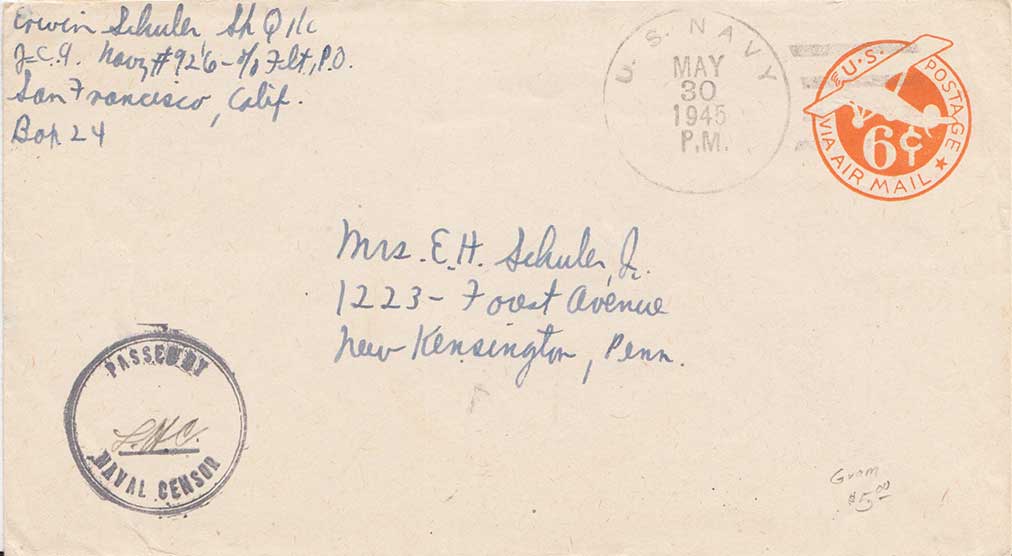 Erwin Schuler Sk Q 1/c
J=C.9. Navy #926 - c/o Flt. P.O.
San Francisco, Calif.
Box 24
U. S. NAVY
MAY
30
1945
P.M.
U.S. POSTAGE
6¢
VIA AIR MAIL
Mrs. E.H. Schuler, Jr.
1223 - Forest Avenue
New Kensington, Penn.
PASSED BY
L.H.C.
NAVAL CENSOR
Guam
$5.00